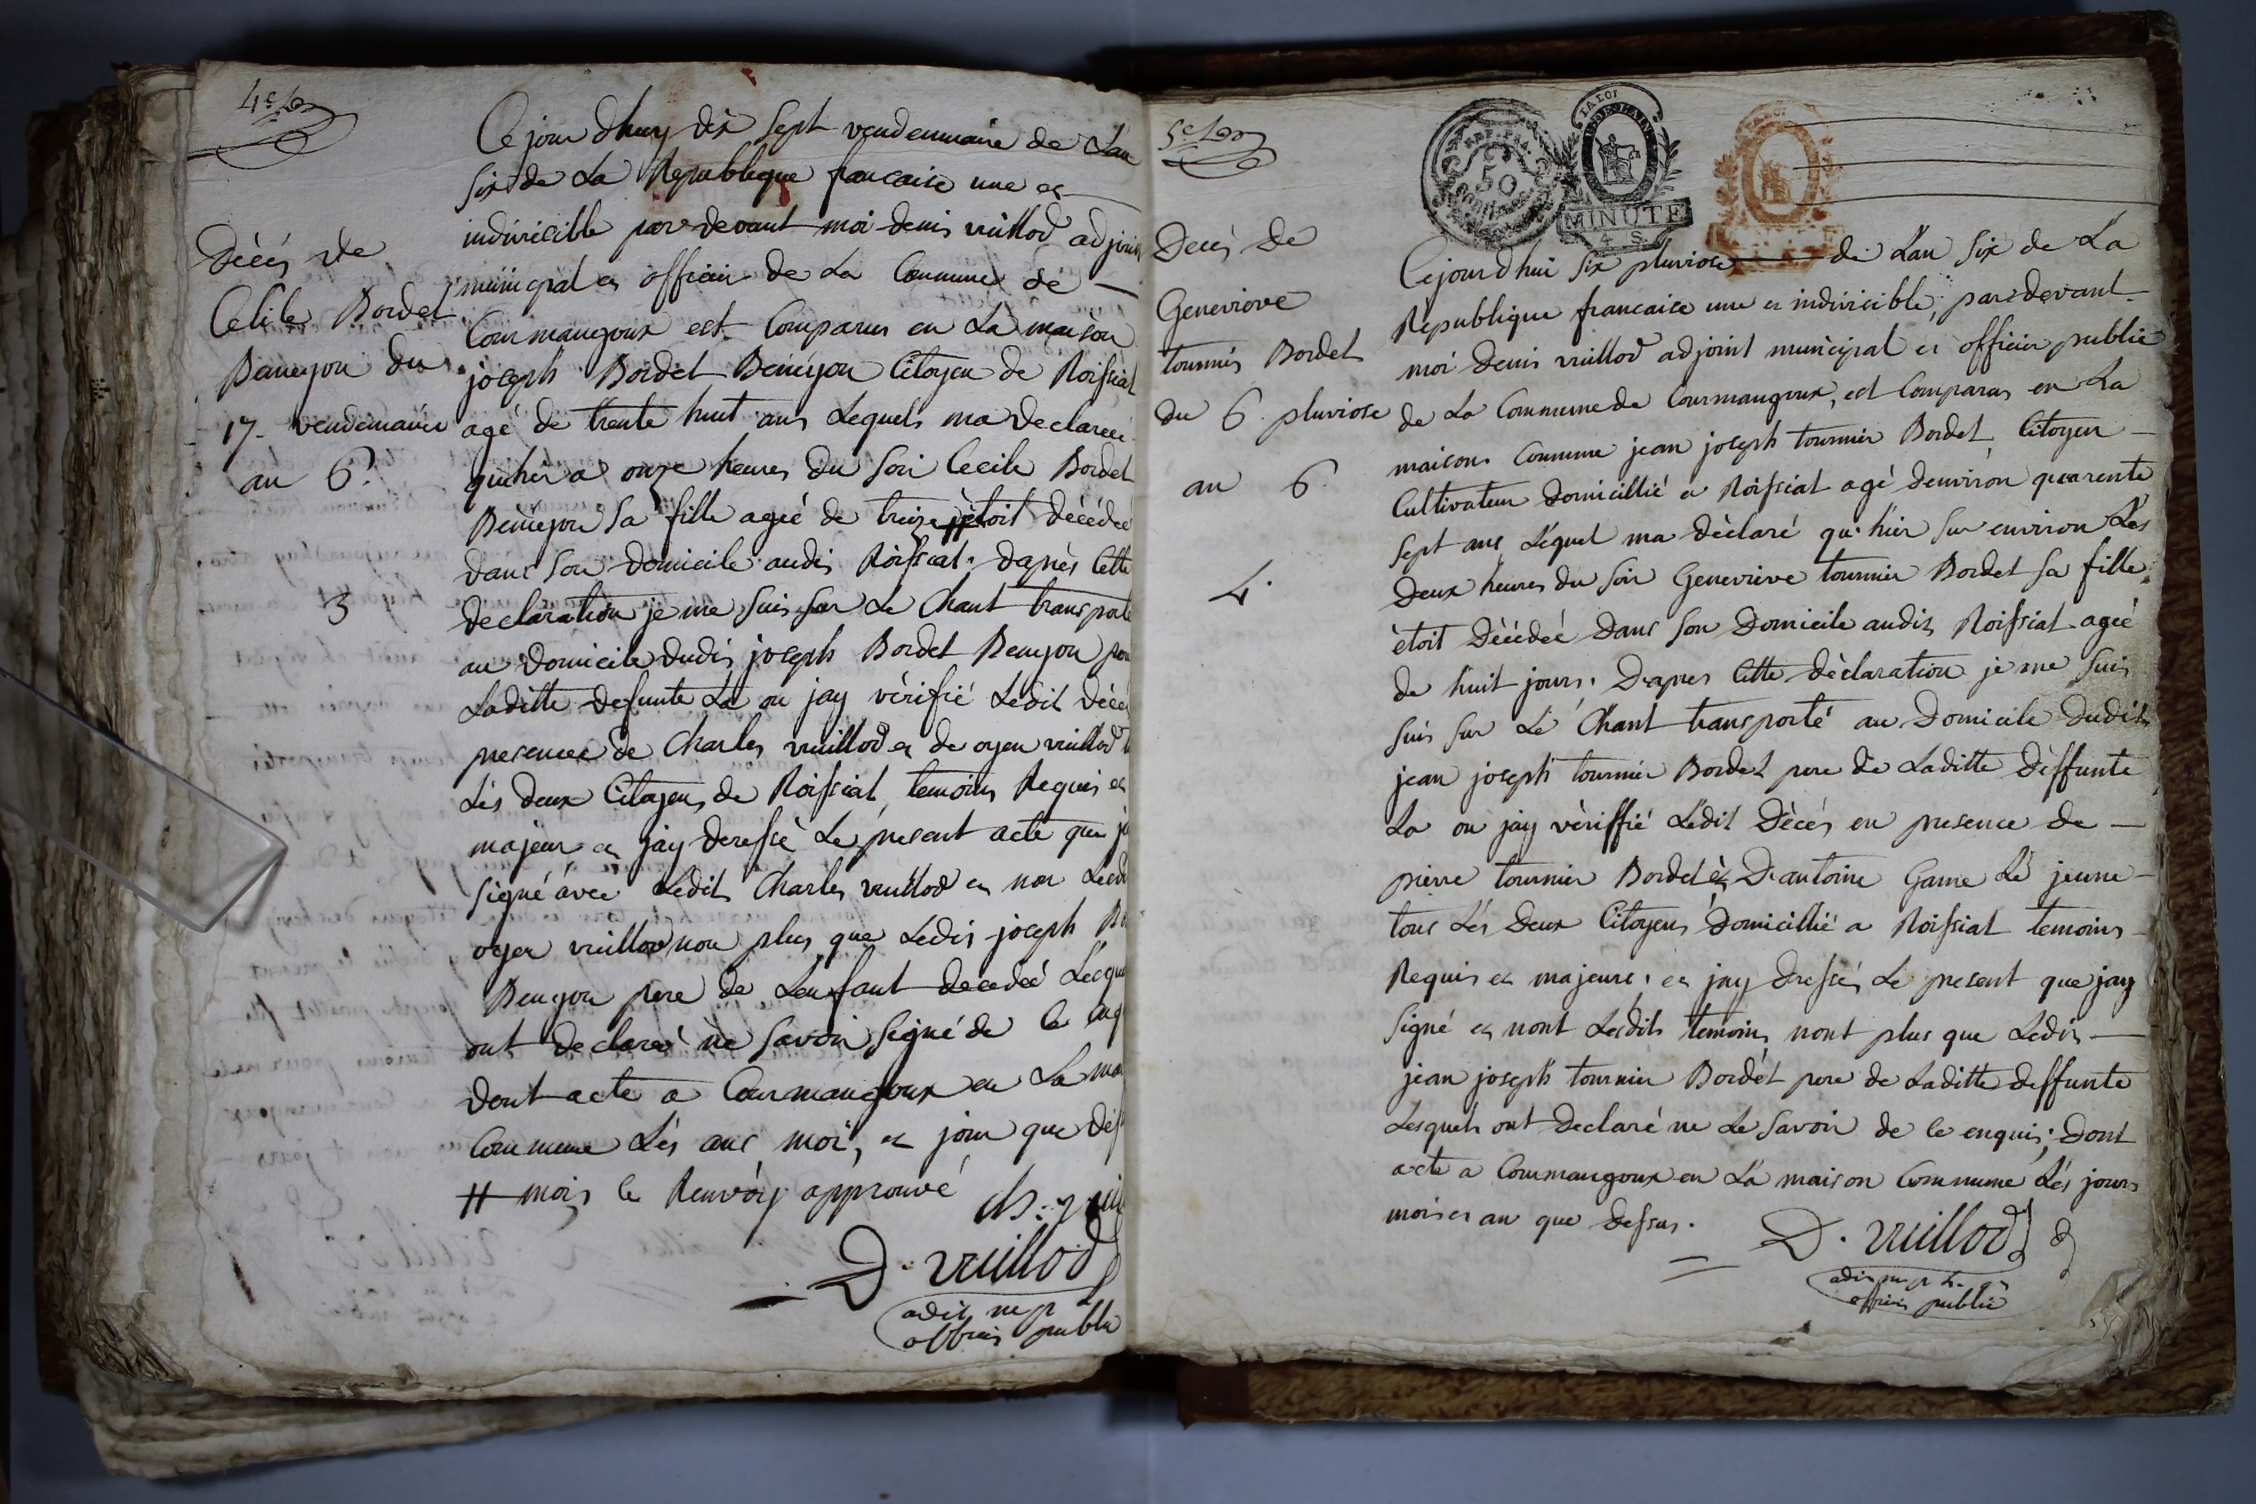 4e
Ce jour dhuy dix sept vendemiaire de Lan
six de La Republique francaise une et
indivisible par devant moi denis vuillod adjoint
municipal et officier de La Commune de
Courmangoux est Comparus en La maison
joseph Bordet Beneyon Citoyen de Roissiat
agé de trente huit ans Lequel ma declareé
quhier a onze heures du soir Cecile Bordet
Beneyon sa fille ageé de treize # étoit décédeé
dans son domicile audit Roissiat. dapres Cette
declaration je me suis sur Le Chant transporté
au domicile dudit joseph Bordet Beneyon
Laditte defunte La ou jay vérifié Ledit
presence de Charles vuillod et de oyen vuillod
Lés deux Citoyens de Roissiat temoins Requis et
majeur et jay deressé Le present acte que
signé avec Ledit Charles vuillod et non
oyen vuillod non plus que Ledit joseph
Beneyon pere de Lenfant decedeé
ont declareé ne savoir signé de ce
dont acte a Courmangoux en La
Commune Lés ans moi, et jour que
# mois ce Renvoÿ approuvé
D. vuillod
adjt mp
officier public
Décés de
Celile Bordet
Beneyon du
17. vendemaire
an 6.
3
5e
50
LA LOI
MINUTE
4 S.
Cejourdhui six pluviose de Lan six de La
Republique francaise une et indivisible, pardevant
moi denis vuillod adjoint municipal et officier public
de La Commune de Courmangoux, est Comparus en La
maison Commune jean joseph tournier Bordet Citoyen
Cultivateur domicillié a Roissiat agé denviron quarente
sept ans Léquel ma déclaré qu'hier sur environ Lés
deux heures du soir Genevieve tournier Bordet sa fille
étoit décédeé dans son domicile audit Roissiat ageé
de huit jours. Dapres Cette déclaration je me suis
suis sur Lé Chant transporté au Domicile dudit
jean joseph tournier Bordet pere de Laditte deffunte
La ou jay vériffié Ledit Décés en presence de
pierre tournier Bordet et Dantoine Game Lé jeune
tous Lés deux Citoyens Domicillié a Roissiat temoins
Requis et majeurs. et jay dressés Le present que jay
signé et nont Lesdits temoins nont plus que Ledit
jean joseph tournier Bordet pere de Laditte deffunte
Lesquels ont declaré ne Le savoir de ce enquis; Dont
acte a Courmangoux en La maison Commune Lés jours
mois et an que dessus.
D. vuillod
adjt mp
officier public
Decés de
Genevieve
tournier Bordet
du 6. pluviose
an 6
4.